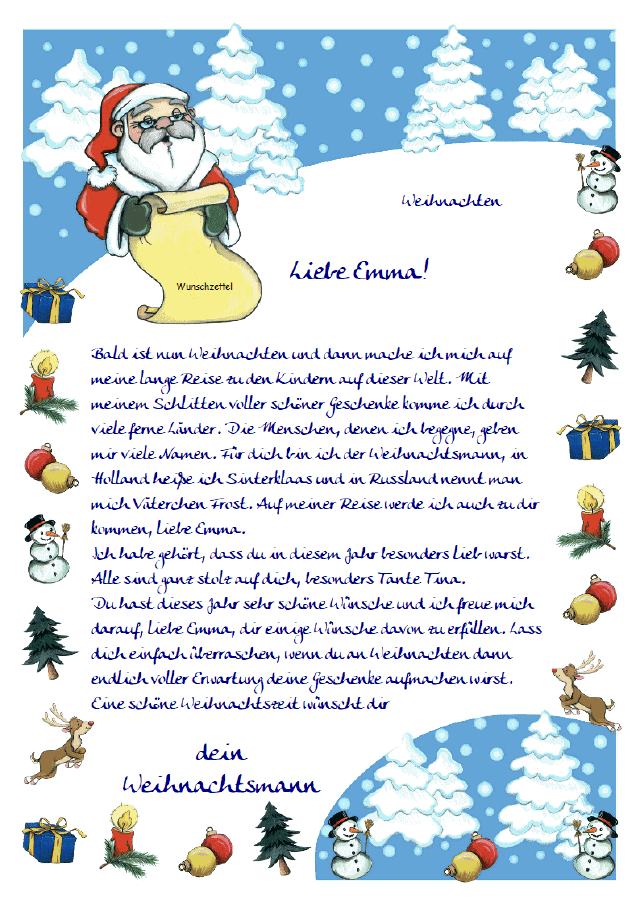 Weihnachten
Wunschzettel
Liebe Emma!
Bald ist nun Weihnachten und dann mache ich mich auf
meine lange Reise zu den Kindern auf dieser Welt. Mit
meinem Schlitten voller schöner Geschenke komme ich durch
viele ferne Länder. Die Menschen, denen ich begegne, geben
mir viele Namen. Für dich bin ich der Weihnachtsmann, in
Holland heiße ich Sinterklaas und in Russland nennt man
mich Väterchen Frost. Auf meiner Reise werde ich auch zu dir
kommen, liebe Emma.
Ich habe gehört, dass du in diesem Jahr besonders lieb warst.
Alle sind ganz stolz auf dich, besonders Tante Tina.
Du hast dieses Jahr sehr schöne Wünsche und ich freue mich
darauf, liebe Emma, dir einige Wünsche davon zu erfüllen. Lass
dich einfach überraschen, wenn du an Weihnachten dann
endlich voller Erwartung deine Geschenke aufmachen wirst.
Eine schöne Weihnachtszeit wünscht dir
dein
Weihnachtsmann